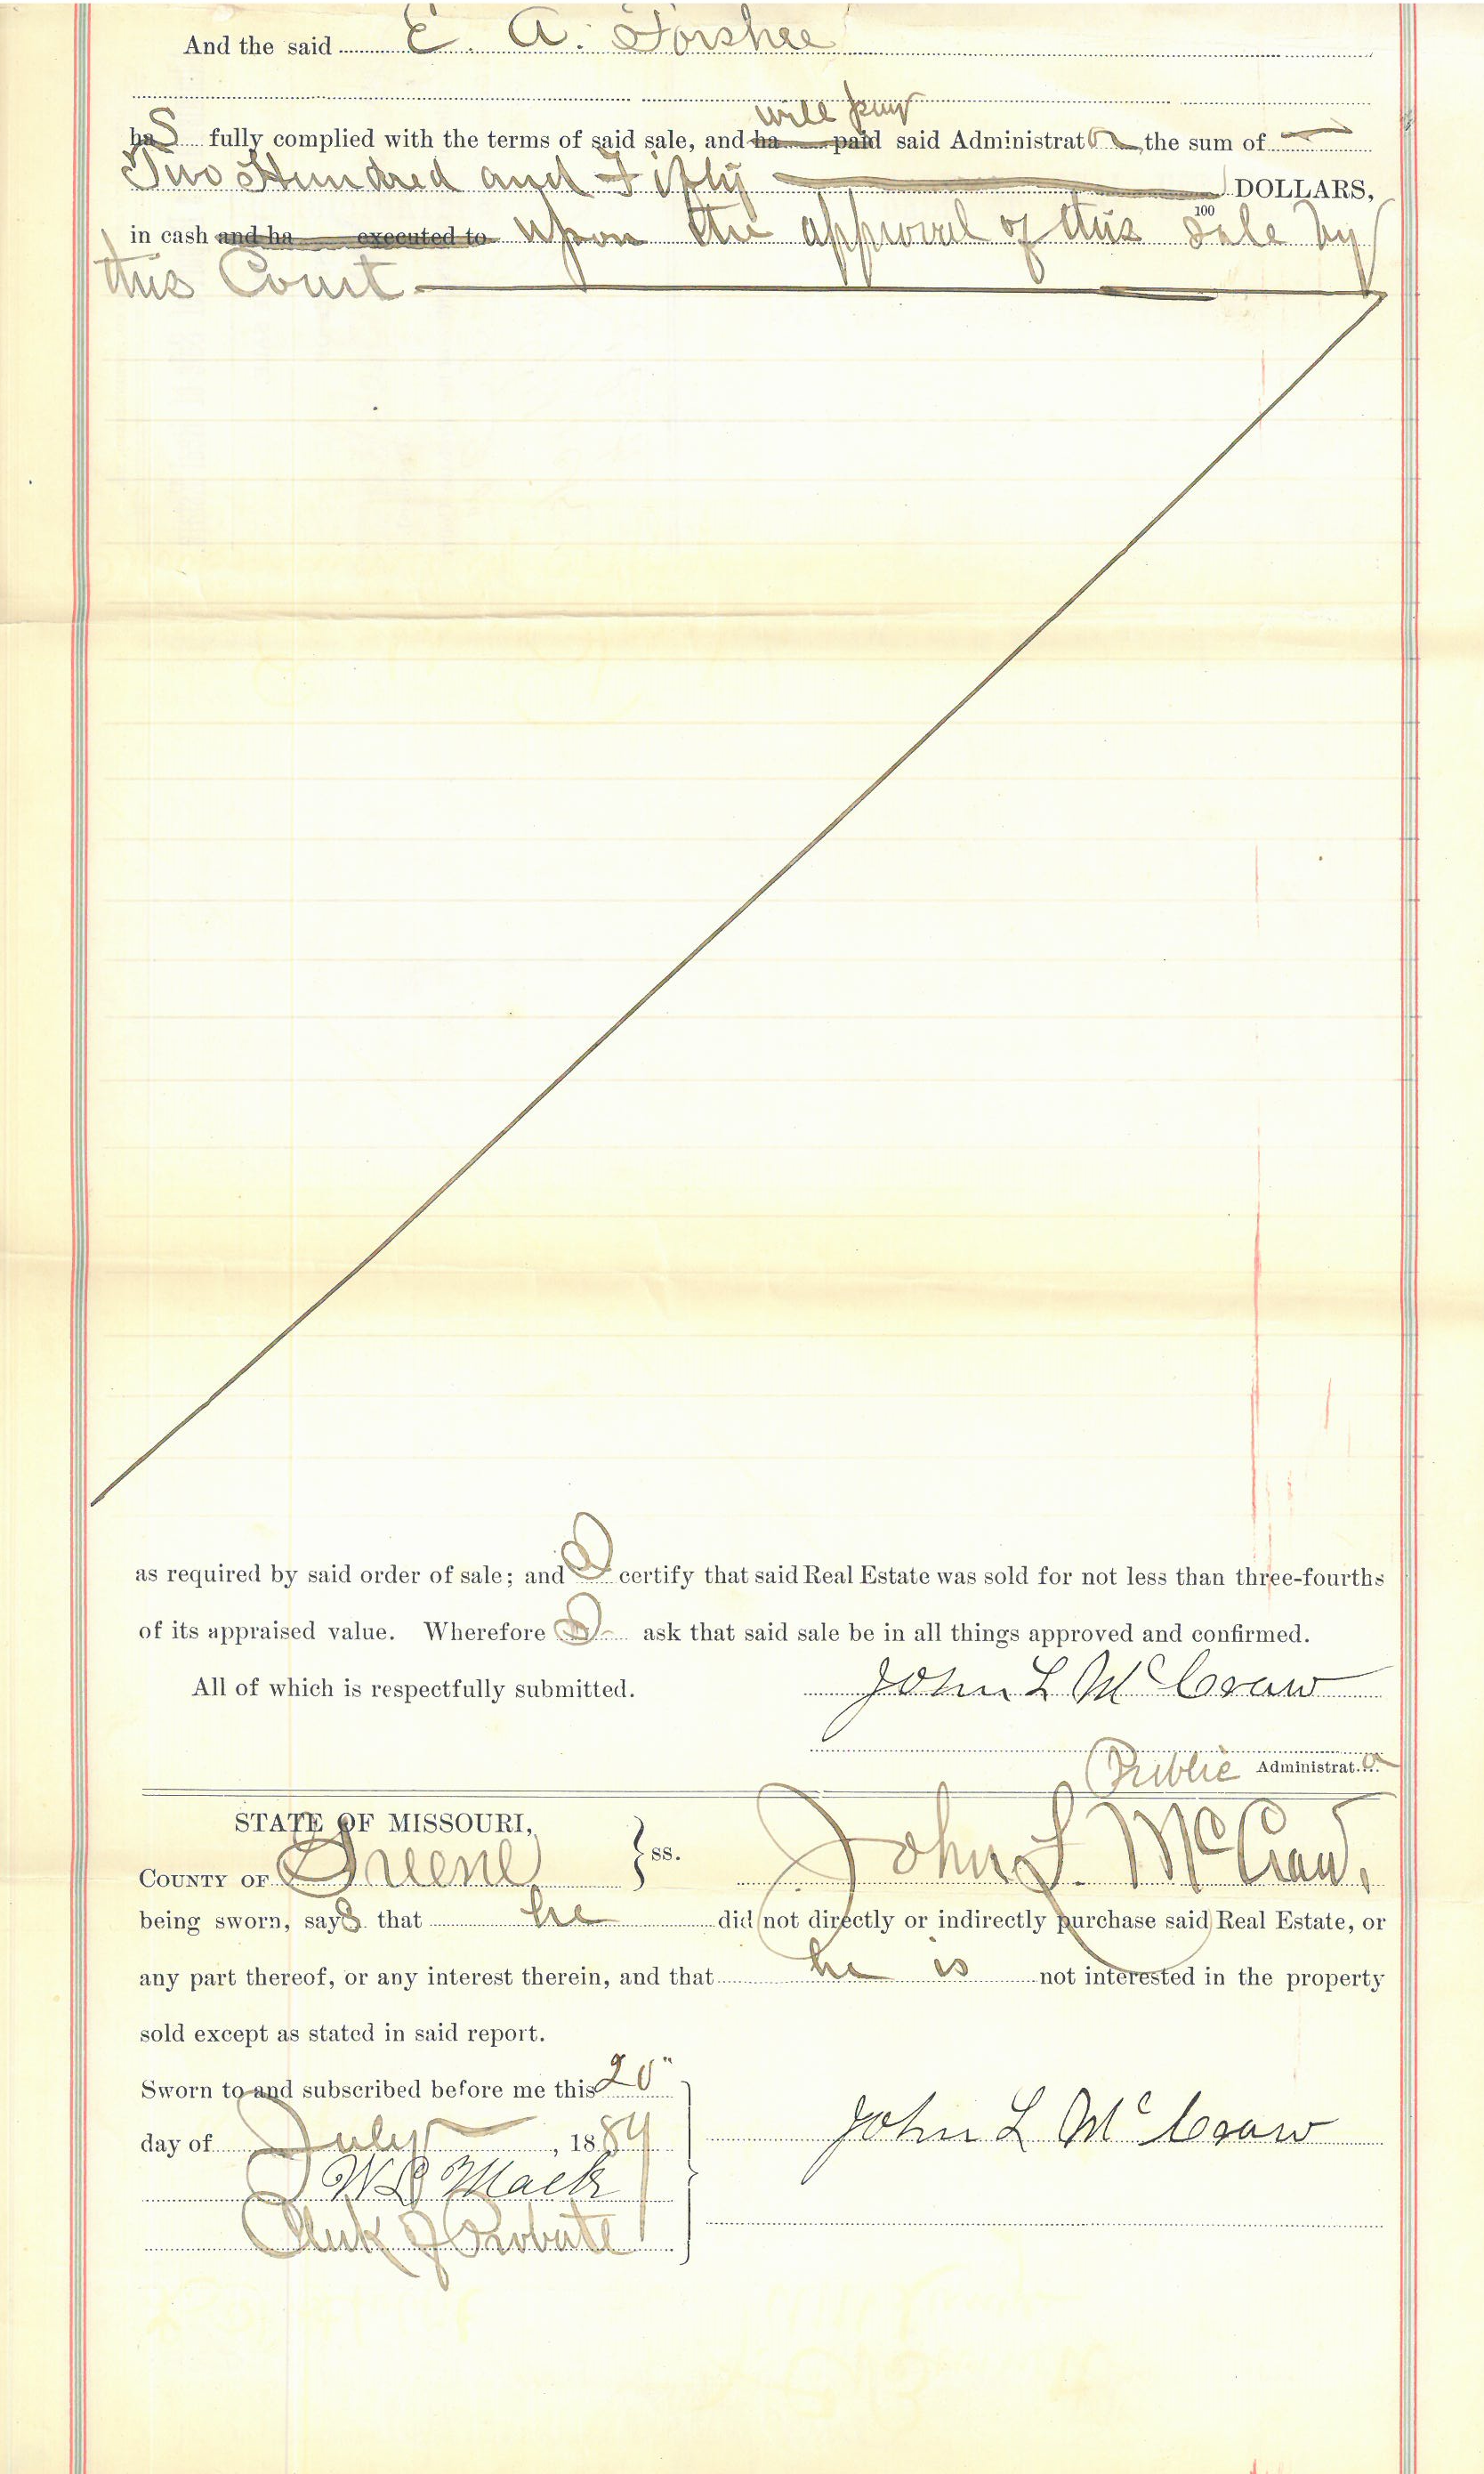 And the said E. A. Forshee
will pay
has fully complied with the terms of said sale, and ha paid said Administrator the sum of
Two Hundred and Fifty DOLLARS,
100
in cash and ha executed to upon the approval of this Sale by
this Court.
as required by said order of sale; and I certify that said Real Estate was sold for not less than three-fourths
of its appraised value. Wherefore I ask that said sale be in all things approved and confirmed.
All of which is respectfully submitted. John L McCraw
Public Administrator
STATE OF MISSOURI,
COUNTY OF Greene } ss. John L. McCraw,
being sworn, says that he did not directly or indirectly purchase said Real Estate, or
any part thereof, or any interest therein, and that he is not interested in the property
sold except as stated in said report.
Sworn to and subscribed before me this 20"
day of July, 1889 John L McCraw
Mack
Clerk of Probate